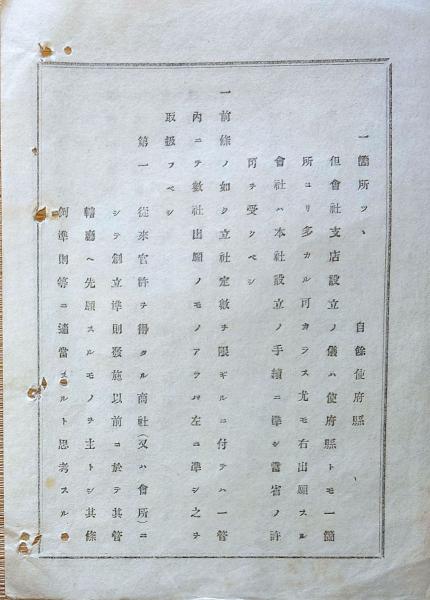 一箇所ツヽ　自餘使府縣
但會社支店設立ノ儀ハ使府縣トモ一箇
所ヨリ多カル可カラス尤モ右出願スル
會社ハ本社設立ノ手續ニ準シ當省ノ許
可ヲ受クベシ
一前條ノ如ク立社定數ヲ限ギルニ付テハ一管
內ニテ數社出願ノモノアラバ左ニ準シ之ヲ
取扱フベシ
第一　從來官許ヲ得タル商社(又ハ會所)ニ
シテ創立準則發施以前ニ於テ其管
轄廳ヘ先願スルモノヲ主トシ其條
例準則等ニ適當スルト思考スル